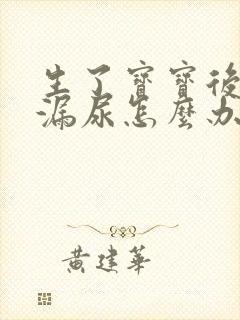 生了寶寶後
漏尿怎麼办
黃建華